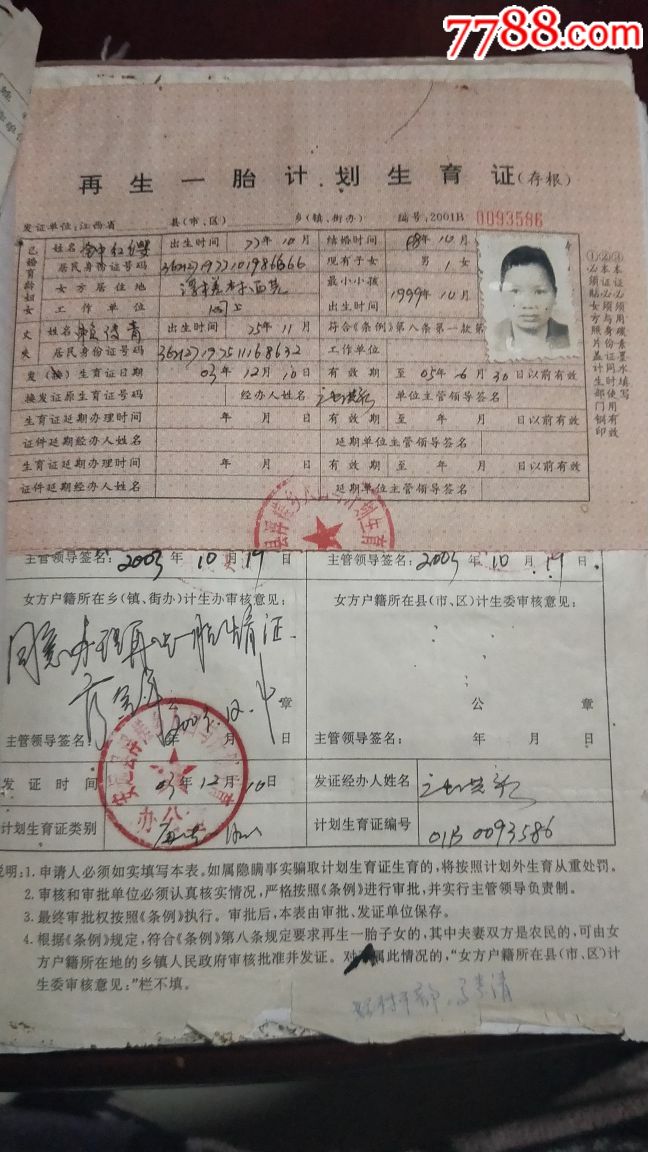 7788.com
再生一胎计划生育证(存根)
发证单位:江西省 县(市、区) 乡(镇、街办) 编号:2001B 0093586
已婚育龄妇女 姓名 出生时间 77年10月 结婚时间 98年10月
居民身份证号码 现有子女 男 1 女
女方居住地 最小小孩出生时间 1999年10月
工作单位 同上
丈夫 姓名 赖俊青 出生时间 75年11月 符合《条例》第八条第一款第
居民身份证号码 工作单位
发(换)生育证日期 03年12月10日 有效期 至05年6月30日以前有效
换发证原生育证号码 经办人姓名 单位主管领导签名
生育证延期办理时间 年 月 日 有效期 至 年 月 日以前有效
证件延期经办人姓名 延期单位主管领导签名
生育证延期办理时间 年 月 日 有效期 至 年 月 日以前有效
证件延期经办人姓名 延期单位主管领导签名
①必须贴女方照片盖计生部门钢印
②本证必须与身份证同时使用有效
③本证必须用碳素墨水填写
主管领导签名: 2003年10月19日 主管领导签名: 2003年10月19日
女方户籍所在乡(镇、街办)计生办审核意见: 女方户籍所在县(市、区)计生委审核意见:
同意办理再生一胎生育证
公 章 公 章
2003.12.
主管领导签名: 年 月 日 主管领导签名: 年 月 日
办公
发证时间 03年12月10日 发证经办人姓名
计划生育证类别 计划生育证编号 01B 0093586
说明:1.申请人必须如实填写本表。如属隐瞒事实骗取计划生育证生育的,将按照计划外生育从重处罚。
2.审核和审批单位必须认真核实情况,严格按照《条例》进行审批,并实行主管领导负责制。
3.最终审批权按照《条例》执行。审批后,本表由审批、发证单位保存。
4.根据《条例》规定,符合《条例》第八条规定要求再生一胎子女的,其中夫妻双方是农民的,可由女
方户籍所在地的乡镇人民政府审核批准并发证。对 属此情况的,“女方户籍所在县(市、区)计
生委审核意见:”栏不填。